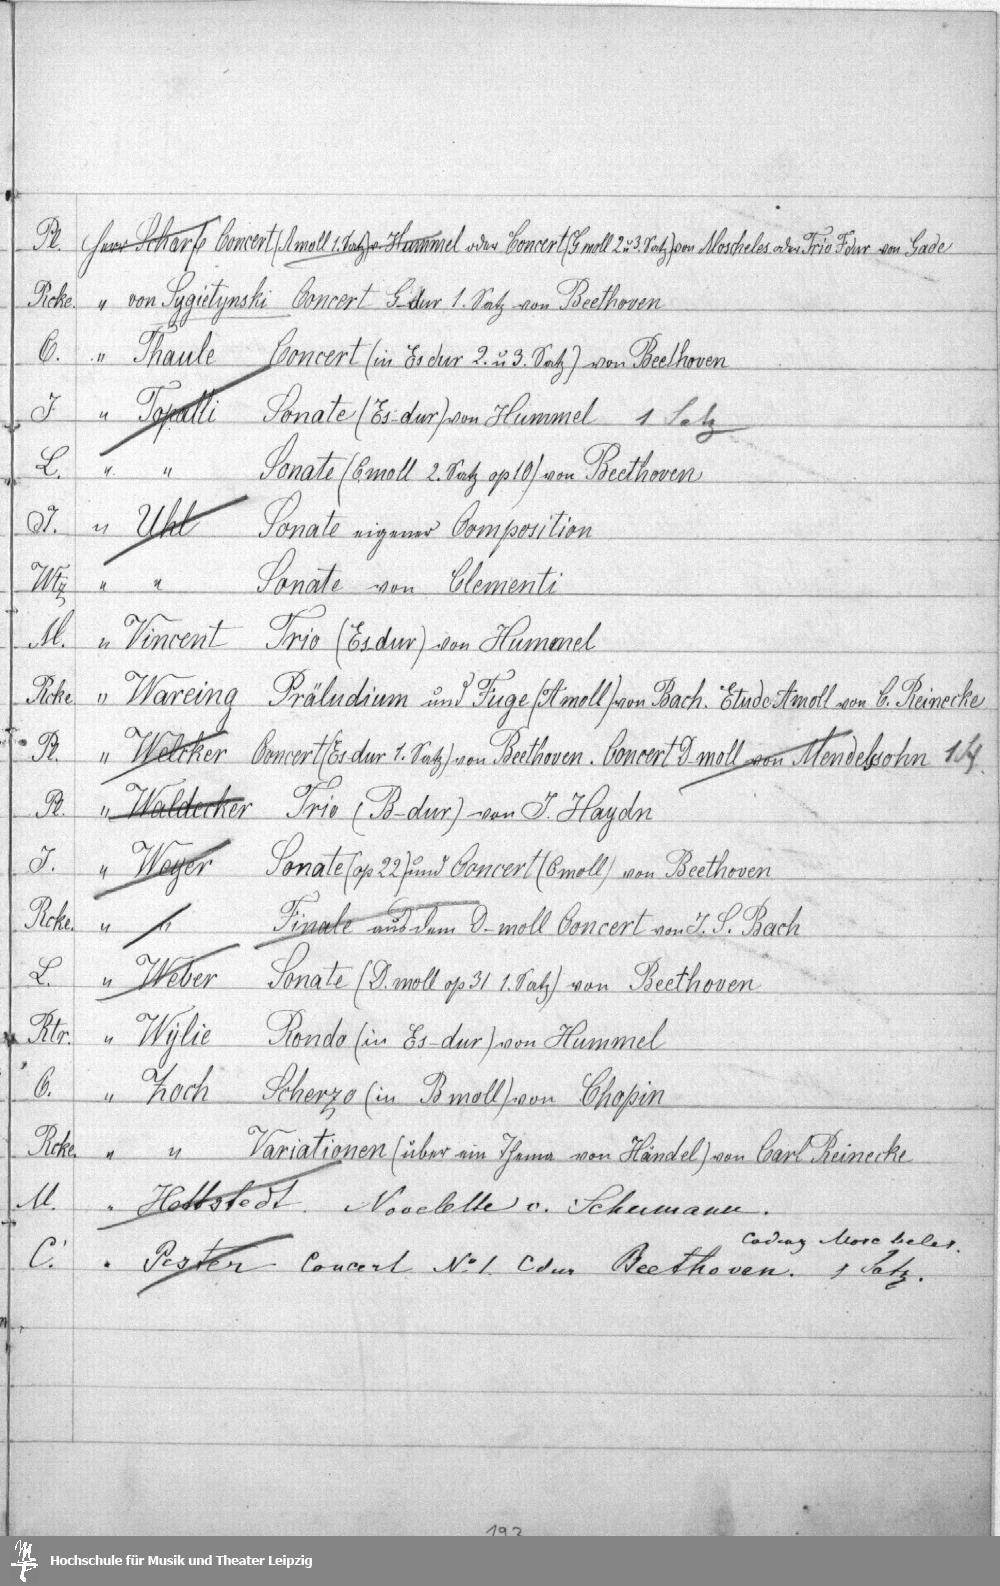 Pl. Herr Scharf Concert (A moll 1. Satz) v. Hummel oder Concert (G moll 2 u 3. Satz) von Moscheles oder Trio F dur von Gade
Rcke. " von Sygietynski Concert G-dur 1. Satz von Beethoven
C. " Thaule Concert (in Es dur 2. u 3. Satz) von Beethoven
J " Topalli Sonate (Es-dur) von Hummel 1 Satz
L. " " Sonate (C moll 2. Satz op 10) von Beethoven
J. " Uhl Sonate eigener Composition
Wtz " " Sonate von Clementi
M. " Vincent Trio (Es dur) von Hummel
Rcke " Wareing Präludium und Fuge (A moll) von Bach. Etude A moll von C. Reinecke
Pl. " Welcker Concert (Es dur 1. Satz) von Beethoven. Concert D-moll von Mendelssohn 1 St.
Pl. " Waldecker Trio (B-dur) von J. Haydn
J. " Weyer Sonate (op 22) und Concert (C moll) von Beethoven
Rcke. " " Finale aus dem D-moll Concert von J. S. Bach
L. " Weber Sonate (D. moll op 31 1. Satz) von Beethoven
Rtr. " Wylie Rondo (in Es-dur) von Hummel
C. " Zoch Scherzo (in B moll) von Chopin
Rcke. " " Variationen (über ein Thema von Händel) von Carl Reinecke
M. " Hollstedt. Novelette v. Schumann.
Cadenz Moscheles.
C. " Pester Concert No 1. C dur Beethoven. 1 Satz.
193
Hochschule für Musik und Theater Leipzig